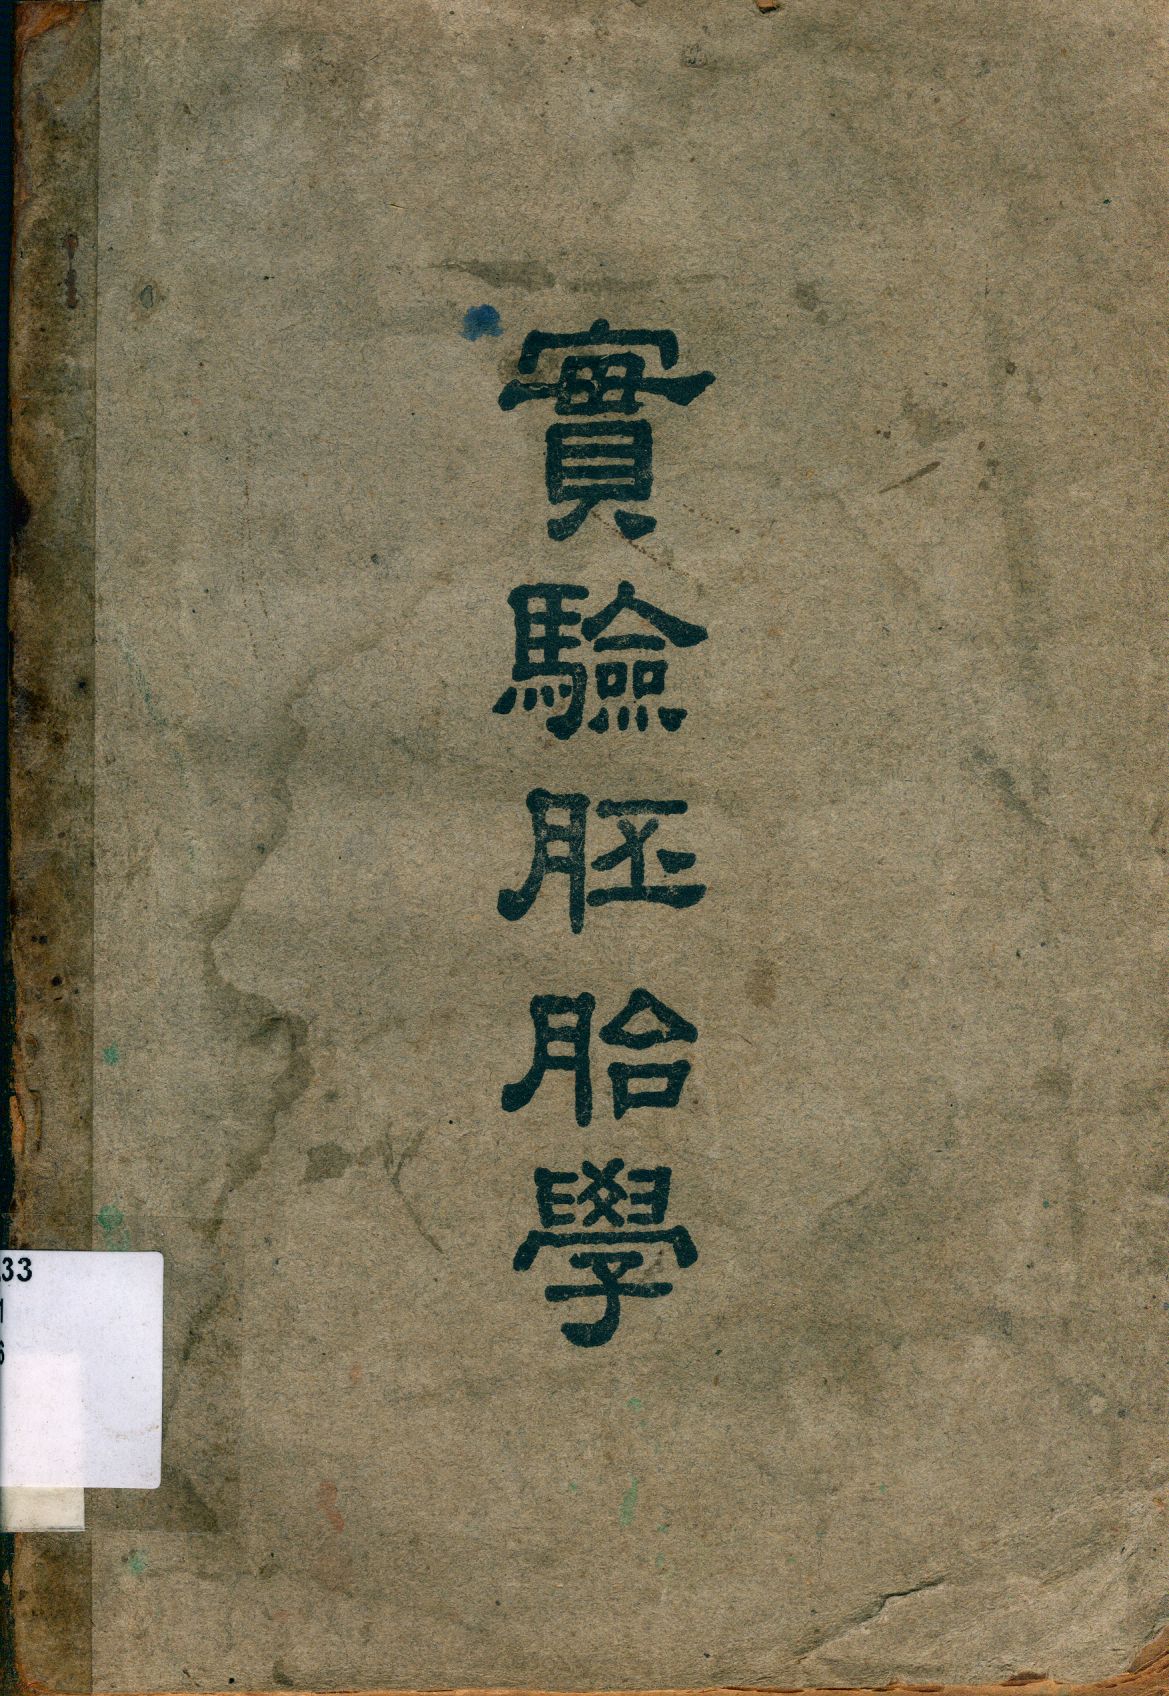 實驗胚胎學
33
1
6